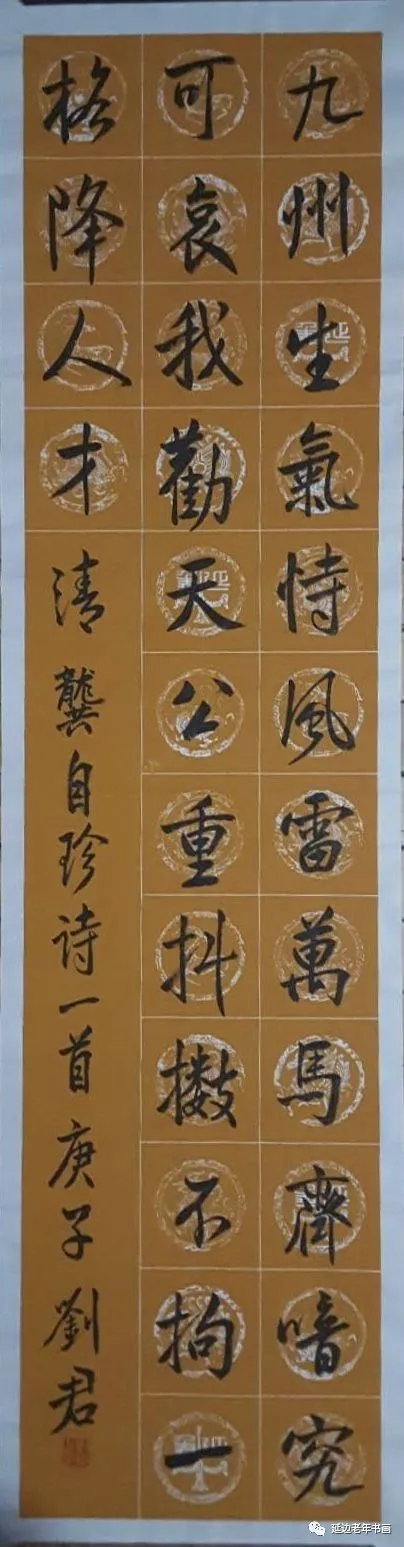 九州生氣恃風雷萬馬齊喑究
可哀我勸天公重抖擻不拘一
格降人才
清龔自珍诗一首庚子劉君
延边老年书画